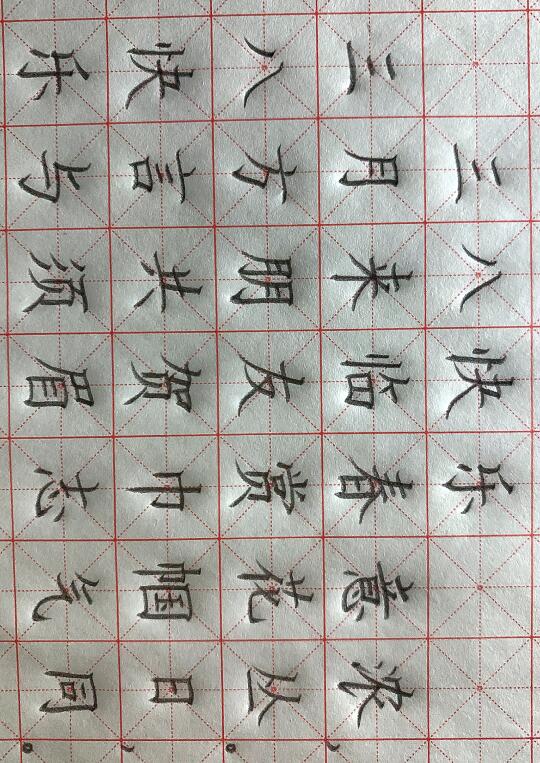 三八快乐
三月来临春意浓，
八方朋友赏花丛。
快言共贺巾帼日，
乐与须眉志气同。